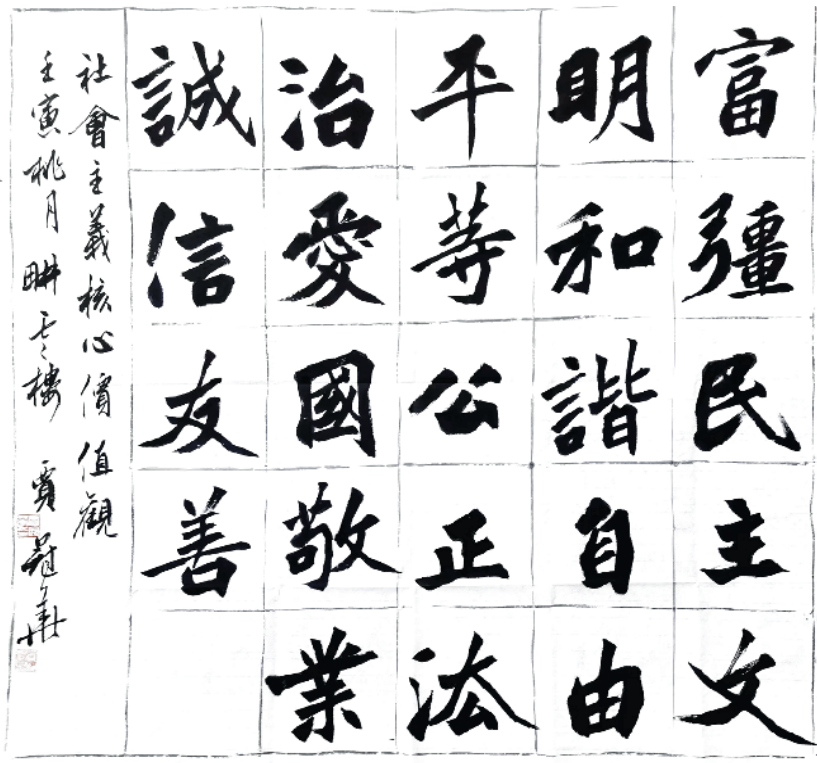 富彊民主文
明和諧自由
平等公正法
治愛國敬業
誠信友善
社會主義核心價值觀
壬寅桃月 畊樓 賈華